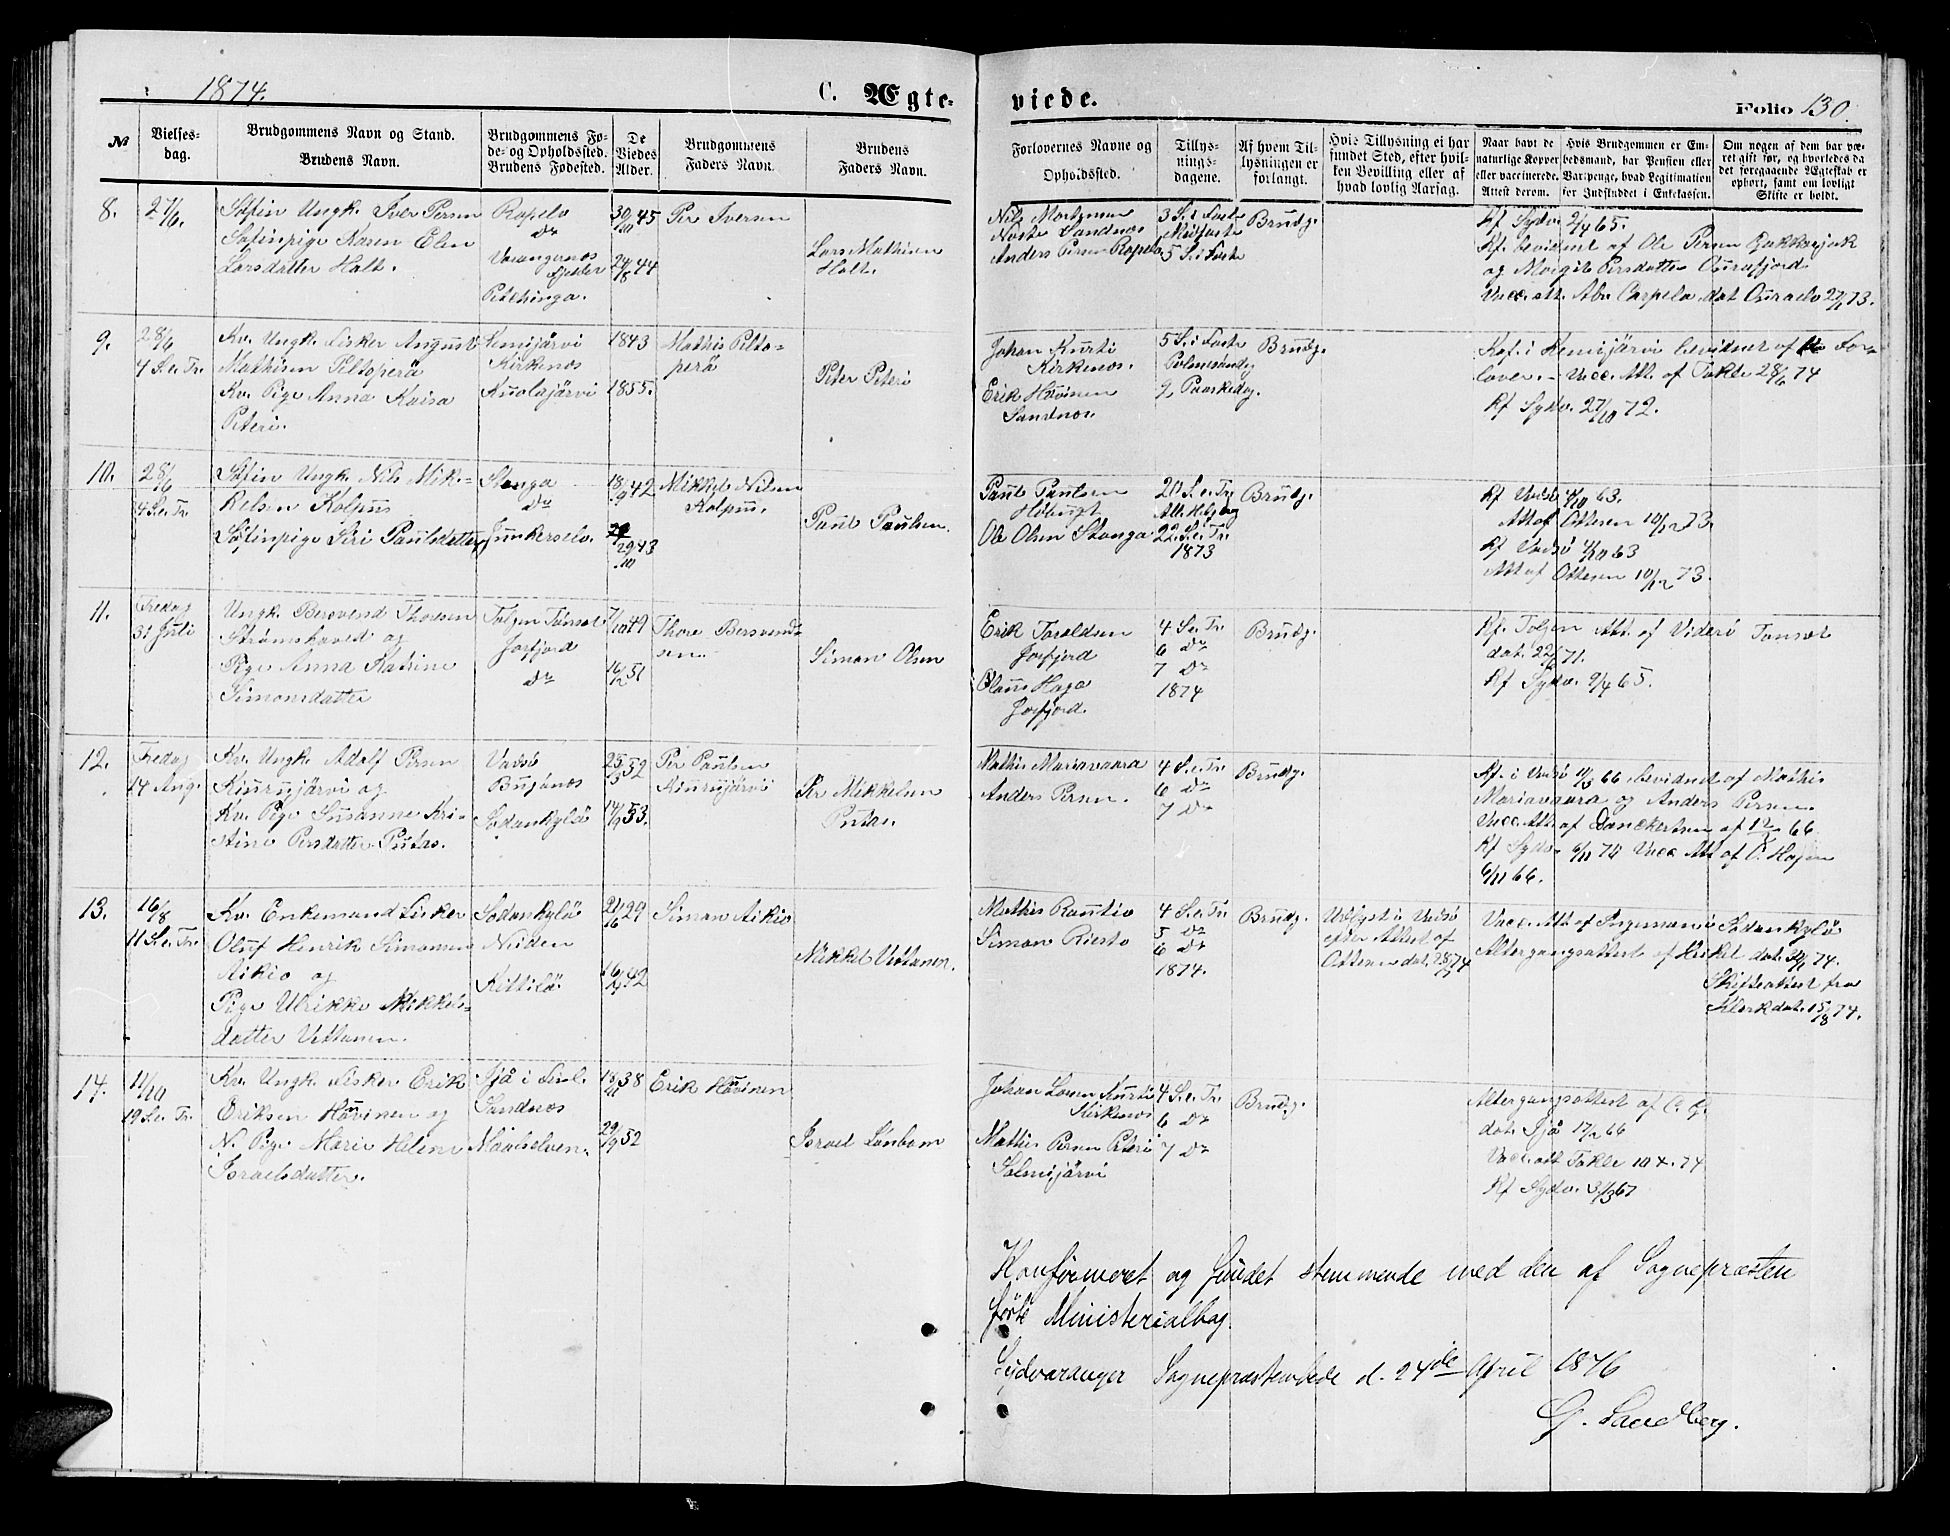 1874.
C. Ægte-
viede.
Folio 130.
№
Vielses-
dag.
Brudgommens Navn og Stand.
Brudens Navn.
Brudgommens Fø-
de- og Opholdssted.
Brudens Fødested.
De
Viedes
Alder.
Brudgommens
Faders Navn.
Brudens
Faders Navn.
Forlovernes Navne og
Opholdssted.
Tillys-
nings-
dagene.
Af hvem Til-
lysningen er
forlangt.
Hvis Tillysning ei har
fundet Sted, efter hvil-
ken Bevilling eller af
hvad lovlig Aarsag.
Naar havt de
naturlige Kopper
eller vaccinerede.
Attest derom.
Hvis Brudgommen er Em-
bedsmand, har Pension eller
Vartpenge, hvad Legitimation
for Indskuddet i Enkekassen.
Om nogen af dem har væ-
ret gift før, og hvorledes da
det foregaaende Ægteskab er
ophørt, samt om lovligt
Skifte er holdt.
8.
27/6.
Søfin Ungk. Iver Persen
Søfinpige Karen Elen
Larsdatter Holt.
Ropelv
do
Varangernes
fjelder
Petchinga.
30/10 45
24/8 44
Per Iversen
Lars Mathisen
Holt.
Nils Mortensen
Næste Sandnes
Anders Persen Ropelv
3 S. i Faste
Midfaste
5 S. i Faste
Brudg.
Kf. Sydv. 2/4 65.
Kf. bevidnet af Ole Persen
og Margit Persdatter
Vacc. att. Abr. Carpelo. dat 27/1 73.
9.
28/6
4 S. e. Tr.
Kv. Ungk. Fisker August
Mathisen Peltoperä
Kv. Pige Anna Kaisa
Peteri.
Kemijärvi
Kirkenes
Kuolajärvi
1843
1855.
Mathis Pelto-
perä
Peter Peteri
Johan Kurti
Kirkenes.
Erik Hävinen
Sandnes.
5 S. i Faste
Palmesøndag
2 Paaskedag.
Brudg.
Kof. i Kemijärvi bevidnet af For-
lover. - Vacc. Att. af Takle 28/6 74
Kf Sydv. 27/10 72.
10.
28/6
4 S. e. Tr
Søfin Ungk. Nils Mik-
kelsen Kolpus
Søfinpige Siri Paulsdatter
Stonga
do
Junkerselv.
18/9 42
29/10 43
Mikkel Nilsen
Kolpus.
Paul Paulsen.
Paul Paulsen
Holmugt
Ole Olsen Stonga
20 S. e. Tr
Alle Helg dag
22. S. e. Tr.
1873
Brudg.
Kf Vadsø 4/10 63.
Att af Ottesen 10/12 73.
Kf Vadsø 4/10 63
Att af Ottesen 10/12 73.
11.
Fredag
31 Juli
Ungk. Bersvend Thoresen
Strømshoved og
Pige Anna Katrine
Simonsdatter
Tolgen Tønset
Jarfjord
do
7/10 49
16/12 51
Thore Bersvend-
sen.
Simon Olsen
Erik Taraldsen
Jarfjord
Claus Haga
Jarfjord.
4 S. e. Tr.
6 do
7 do
1874
Brudg.
Kf. Tolgen Att. af Viderö Tønset
dat. 22/6 71.
Kf Sydv. 2/4 65.
12.
Fredag
14 Aug.
Kv. Ungk. Adolf Persen
Kiurujärvi og
Kv. Pige Susanne Kri-
stine Persdatter Putas.
Vadsø
Bugønes
Sodankylä
25/5 52
14/9 53.
Per Paulsen
Kiurujärvi
Per Mikkelsen
Putas.
Mathis Mariavaara
Anders Persen.
4 S. e. Tr.
6 do
7 do
Brudg.
Kf. i Vadsø 11/3 66 bevidnet af Mathis
Mariavaara og Anders Persen.
Vacc. Att. af Danckertsen af 12/ 66
Kf Sydv. 6/11 70 Vacc Att af O. Hagen
6/11 66.
13.
16/8
11 S. e. Tr.
Kv. Enkemand Fisker
Oluf Henrik Simonsen
Aikio og
Pige Ulrikke Mikkels-
datter Vettanen.
Sodankylä
Neiden
Kittilä
21/6 29
42
Simon Aikio
Mikkel Vettanen.
Mathis Rautio
Simon Riesto
4 S. e. Tr
5 do
6 do
1874.
Brudg.
Udlyst i Vadsø
efter Attest af
Ottesen dat. 28/7 74
Vacc. Att. af Ingeman i Sodankylä
Altergangsattest af Heikel dat. 74.
Skifteattest fra
Klerk dat. 15/8 74.
14.
11/10
19 S. e. Tr.
Kv. Ungk. Fisker Erik
Eriksen Hävinen og
N. Pige Marie Helene
Israelsdatter.
Ijå i Finl.
Sandnes
Maalselven.
38
29/9 52
Erik Hävinen
Israel Lønbom
Johan Larsen Kurti
Kirkenes
Mathis Persen Peteri
Salmijärvi
4 S. e. Tr
6 do
7 do
Brudg.
Altergangsattest af C. G.
dat. Ijå 17/2 66
Vacc. att Takle 10 4. 74
Kf Sydv. 3/3 67
Konfirmeret og fundet stemmende med den af Sognepræsten
førte Ministerialbog.
Sydvaranger Sognepræstembede d. 24de April 1876
G. Sandberg.